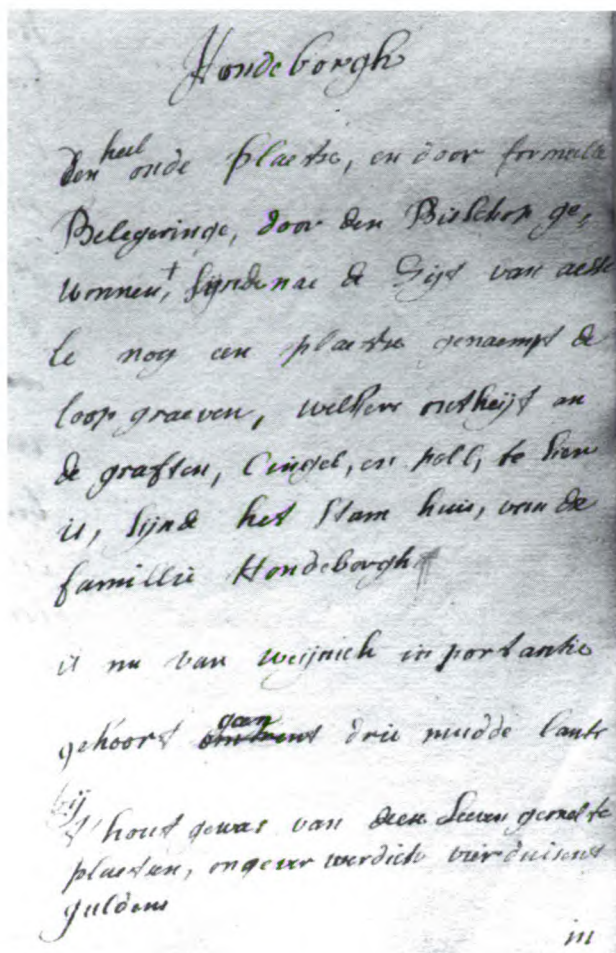 Hondeborgh
heel
den oude plaetse, en door formeele
Belegeringe, door den Bisschop ge,
wonnen, sijnde nae de Zijt van aess
le nog een plaetse genaempt de
loop graeven, welkers outheijt an
de graften, Cingel, en poll, te sien
is, sijnde het stam huis, van de
famillie Hondeborgh
is nu van weijnich inportantie
geen
gehoort omtrent drie mudde lants
bij
T' hout gewas van deen seeven gemelte
plaetsen, ongever werdich vier duisent
guldens
in